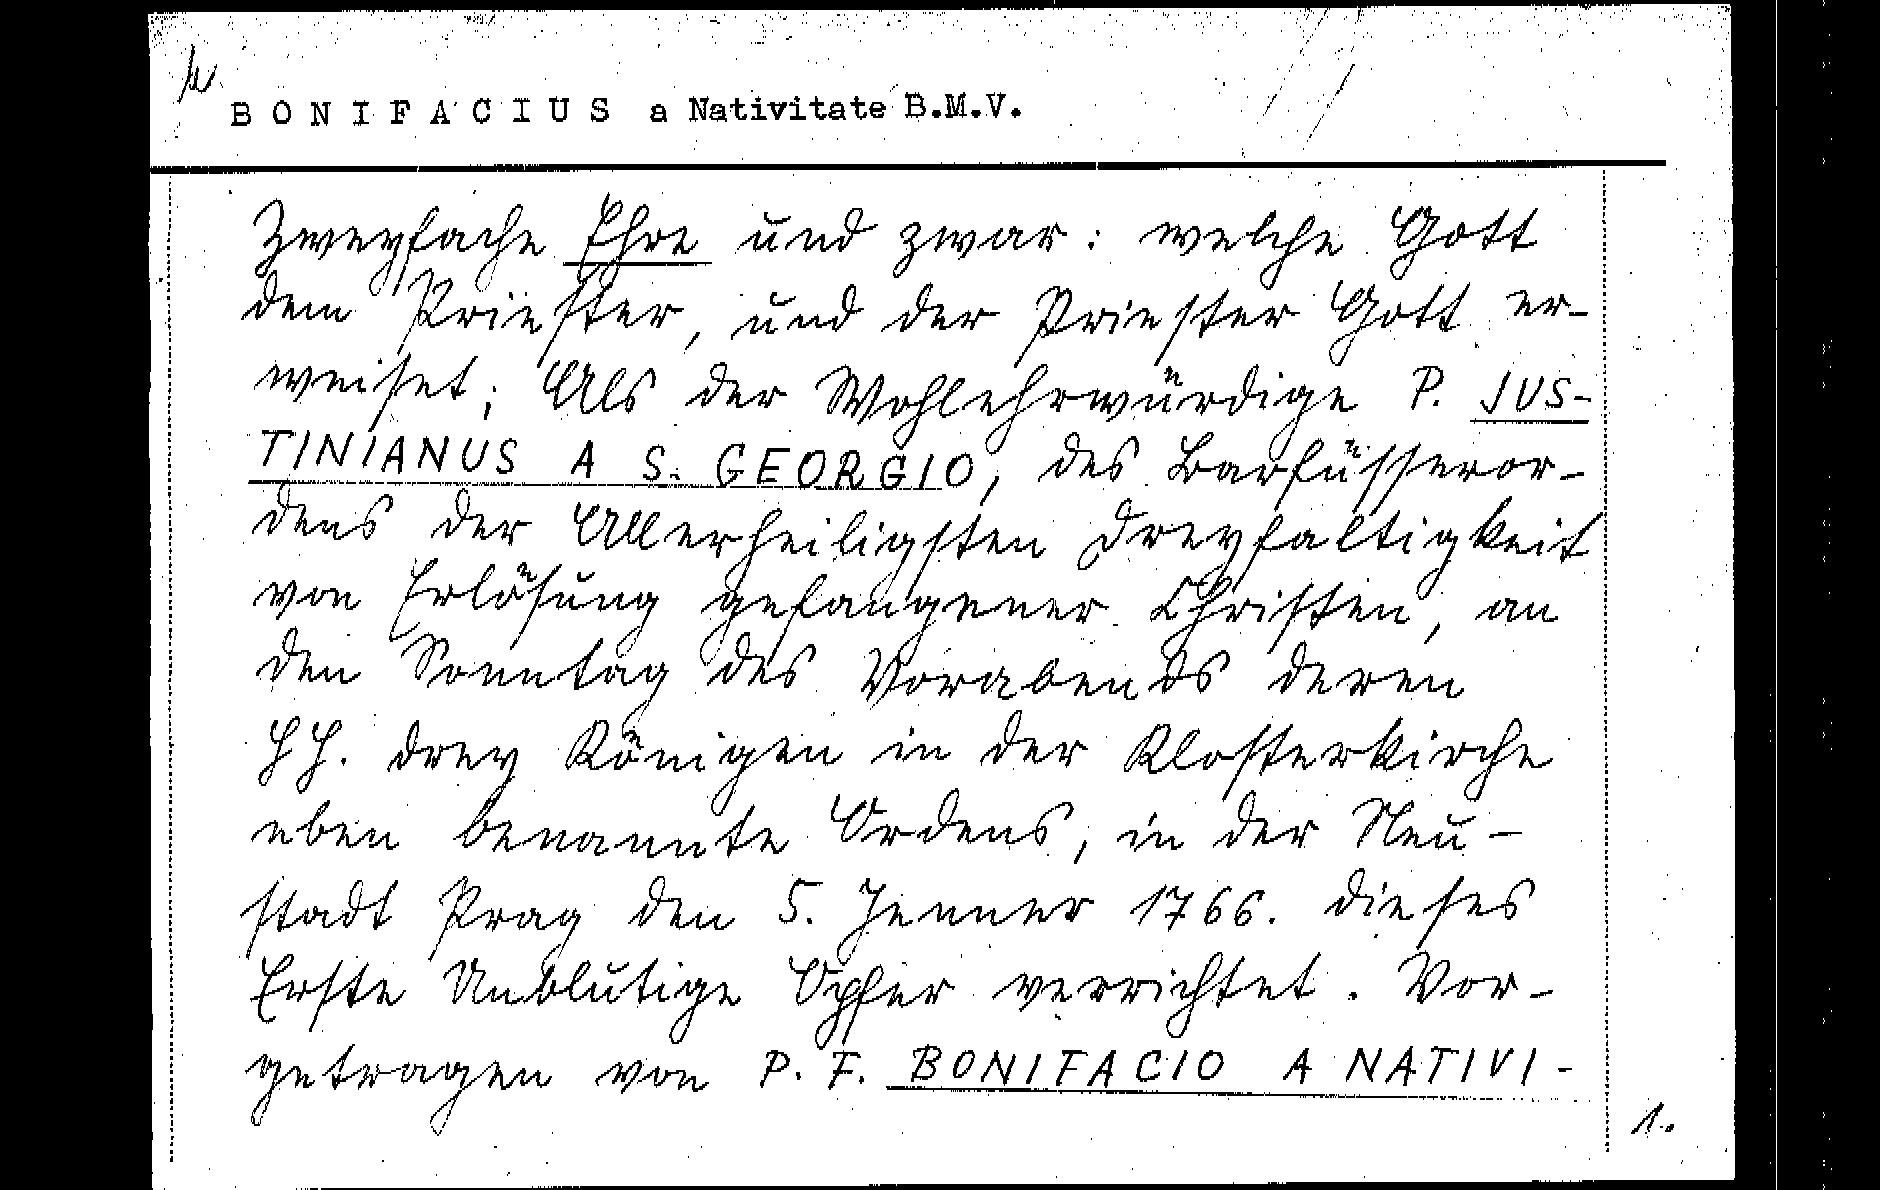 BONIFACIUS a Nativitate B.M.V.
Zweyfache Ehre und zwar: welche Gott
dem Priester, und der Priester Gott er-
weiset; Als der Wohlehrwürdige P. JUS-
TINIANUS A S. GEORGIO, des Barfüsseror-
dens der Allerheiligsten Dreyfaltigkeit
von Erlösung gefangener Christen, an
den Sonntag des Vorabends deren
HH. drey Königen in der Klosterkirche
eben benannte Ordens, in der Neu-
stadt Prag den 5. Jenner 1766. dieses
Erste Unblutige Opfer verrichtet. Vor-
getragen von P. F. BONIFACIO A NATIVI-
1.